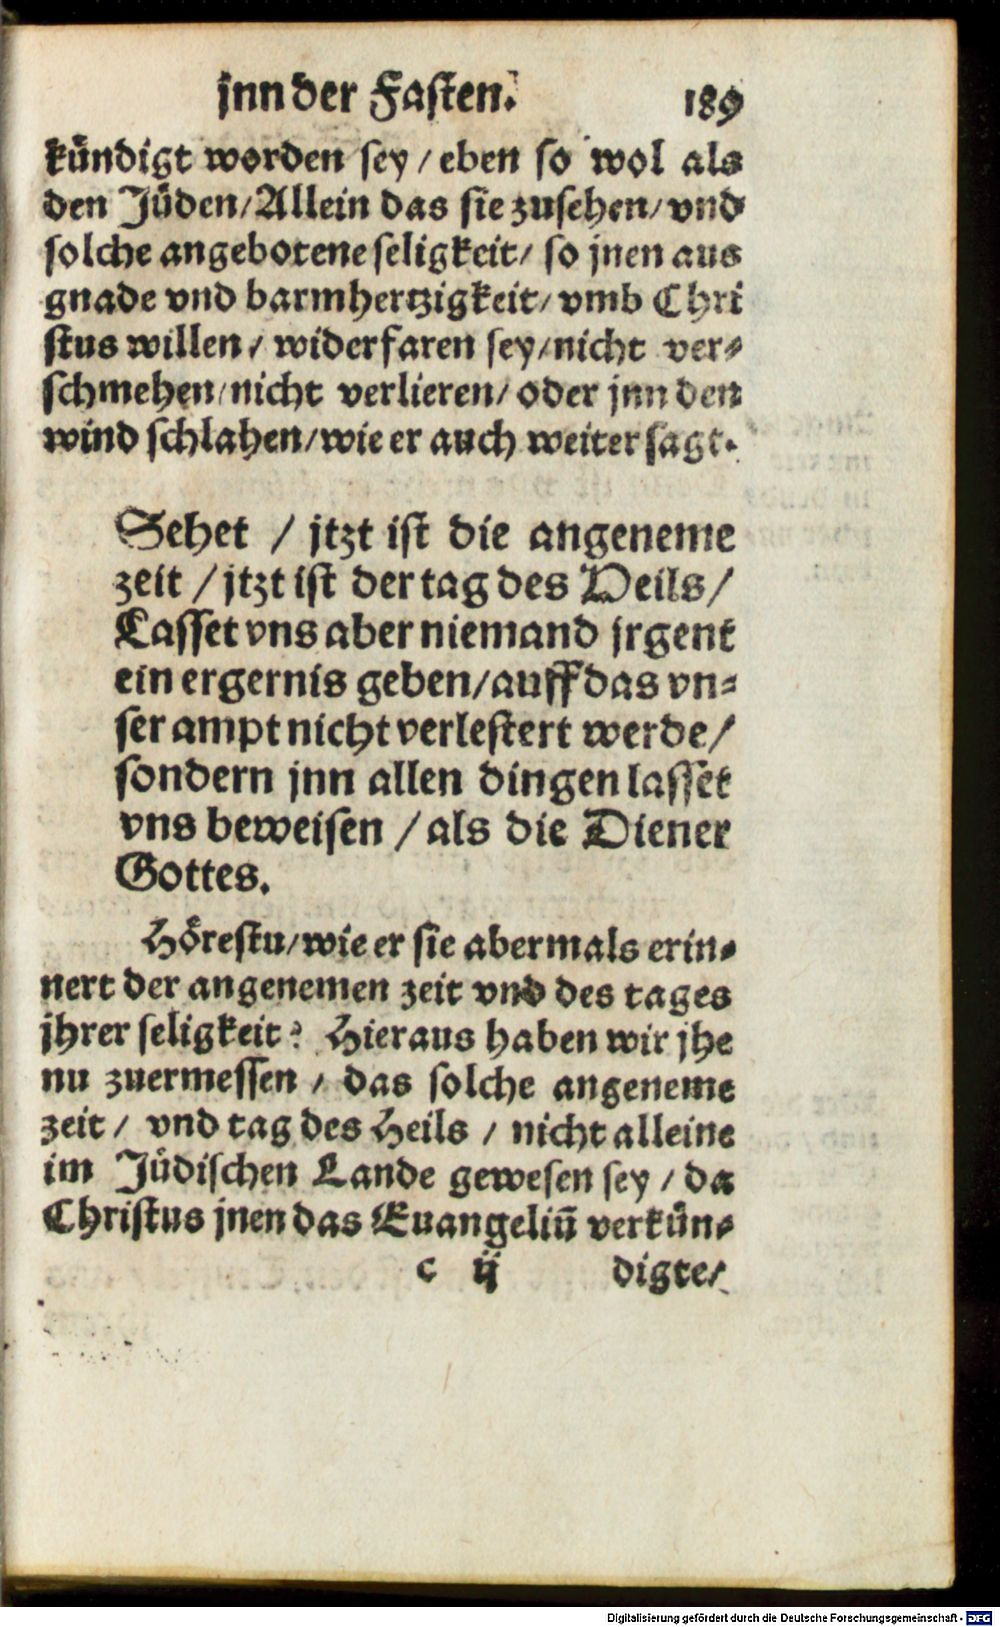 jnn der Fasten. 189
kündigt worden sey / eben so wol als
den Jüden / Allein das sie zusehen / vnd
solche angebotene seligkeit / so jnen aus
gnade vnd barmhertzigkeit / vmb Chri
stus willen / widerfaren sey / nicht ver-
schmehen / nicht verlieren / oder jnn den
wind schlahen / wie er auch weiter sagt.
Sehet / jtzt ist die angeneme
zeit / jtzt ist der tag des Heils /
Lasset vns aber niemand jrgent
ein ergernis geben / auff das vn-
ser ampt nicht verlestert werde /
sondern jnn allen dingen lasset
vns beweisen / als die Diener
Gottes.
Hörestu / wie er sie abermals erin-
nert der angenemen zeit vnd des tages
jhrer seligkeit? Hieraus haben wir jhe
nu zuermessen / das solche angeneme
zeit / vnd tag des Heils / nicht alleine
im Jüdischen Lande gewesen sey / da
Christus jnen das Euangeliū verkün-
c ij digte /
Digitalisierung gefördert durch die Deutsche Forschungsgemeinschaft - DFG